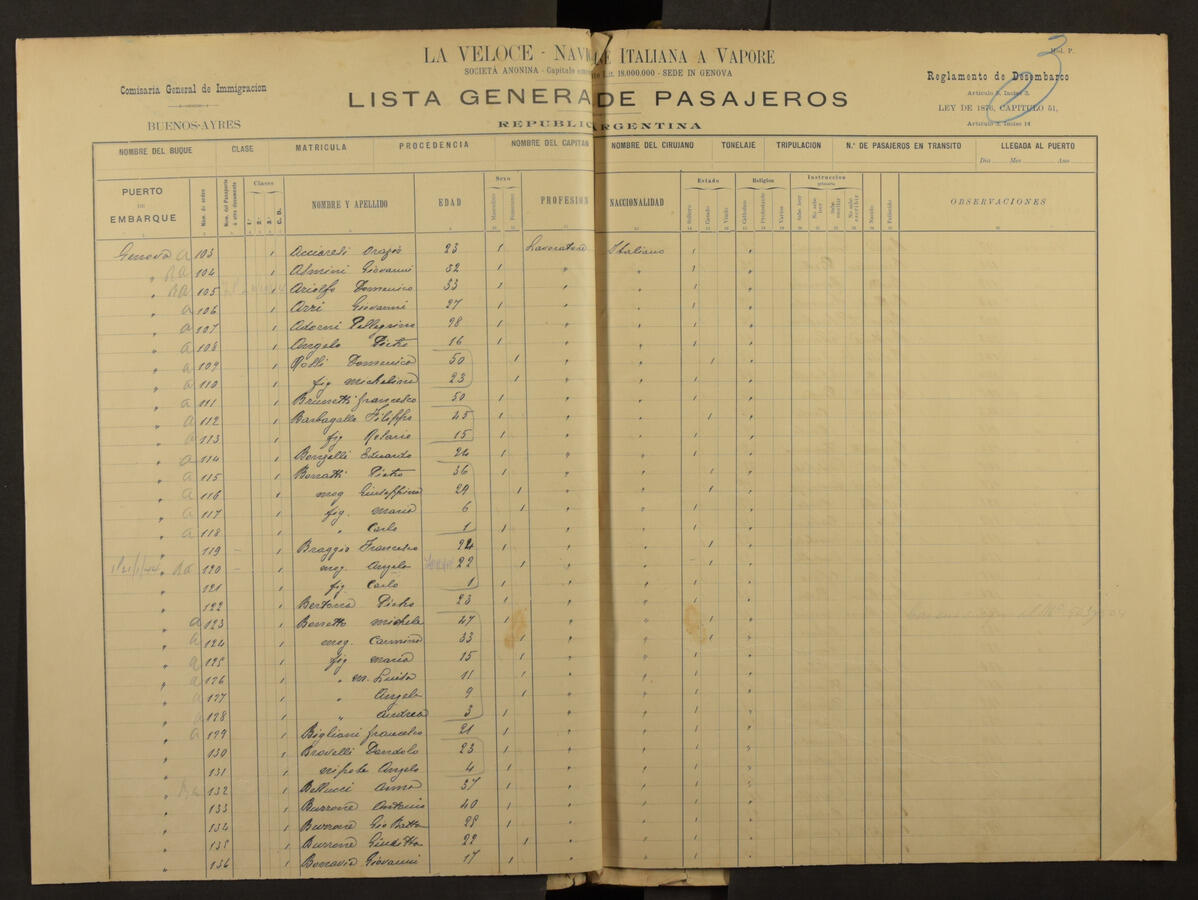 LA VELOCE - NAV E ITALIANA A VAPORE
SOCIETÀ ANONINA - Capitale Lit. 18.000.000 - SEDE IN GENOVA
Comisaria General de Immigracion
BUENOS-AYRES
LISTA GENERA DE PASAJEROS
REPUBLIC ARGENTINA
3
Mod. P.
Reglamento de Desembarco
Articulo 8, Inciso 3.
LEY DE 1876, CAPITULO 51,
Articulo 3, Inciso 14
NOMBRE DEL BUQUE CLASE MATRICULA PROCEDENCIA NOMBRE DEL CAPITAN NOMBRE DEL CIRUJANO TONELAJE TRIPULACION N.º DE PASAJEROS EN TRANSITO LLEGADA AL PUERTO
Dia Mes Ano
PUERTO DE EMBARQUE Núm. de orden Núm. del Pasaporte ú otro documento Clases 1.ª 2.ª 3.ª C. B. NOMBRE Y APELLIDO EDAD Sexo Masculino Femenino PROFESION NACCIONALIDAD Estado Soltero Casado Viudo Religion Catholico Protestante Varios Instruccion primaria Sabe leer No sabe leer Sabe escribir No sabe escribir Nacido Fallecido OBSERVACIONES
Genova a 103 1 Acciaresi Orazio 23 1 Lavoratore Italiano 1 "
" Ra 104 1 Almini Giovanni 32 1 " " 1 "
" Ra 105 1 Ariolfo Domenico 33 1 " " 1 "
" a 106 1 Arri Giovanni 27 1 " " 1 "
" a 107 1 Adorni Pellegrino 28 1 " " 1 "
" a 108 1 Angelo Pietro 16 1 " " 1 "
" a 109 1 Rolli Domenica 50 1 " " 1 "
" a 110 1 fig Michelina 23 1 " " 1 "
" a 111 1 Brunetti Francesco 50 1 " " 1 "
" a 112 1 Barbagallo Filippo 45 1 " " 1 "
" a 113 1 fig Rosario 15 1 " " 1 "
" a 114 1 Eduardo 24 1 " " 1 "
" a 115 1 Bonatti Pietro 36 1 " " 1 "
" a 116 1 mog Giuseppina 29 1 " " 1 "
" a 117 1 fig. Maria 6 1 " " 1 "
" a 118 1 " Carlo 1 1 " " 1 "
" 119 - 1 Braggio Francesco 24 1 " " 1 "
" Ra 120 - 1 mog. Angela 22 1 " " 1 "
" 121 1 fig. Carlo 1 1 " " 1 "
" 122 1 Pietro 23 1 " " 1 "
" a 123 1 Borretto Michele 47 1 " " 1 "
" a 124 1 mog. Carmina 33 1 " " 1 "
" a 125 1 fig Maria 15 1 " " 1 "
" a 126 1 " M. Luisa 11 1 " " 1 "
" a 127 1 " Angela 9 1 " " 1 "
" a 128 1 " Andrea 3 1 " " 1 "
" a 129 1 Bigliani Francesco 21 1 " " 1 "
" 130 1 Brovelli Dandolo 23 1 " " 1 "
" 131 1 nipote Angelo 4 1 " " 1 "
" Ra 132 1 Bellucci 37 1 " " 1 "
" 133 1 Burrone Antonio 40 1 " " 1 "
" 134 1 Burrone Gio Batta 28 1 " " 1 "
" 135 1 Burrone Giuditta 22 1 " " 1 "
" 136 1 Bonavia Giovanni 17 1 " " 1 "